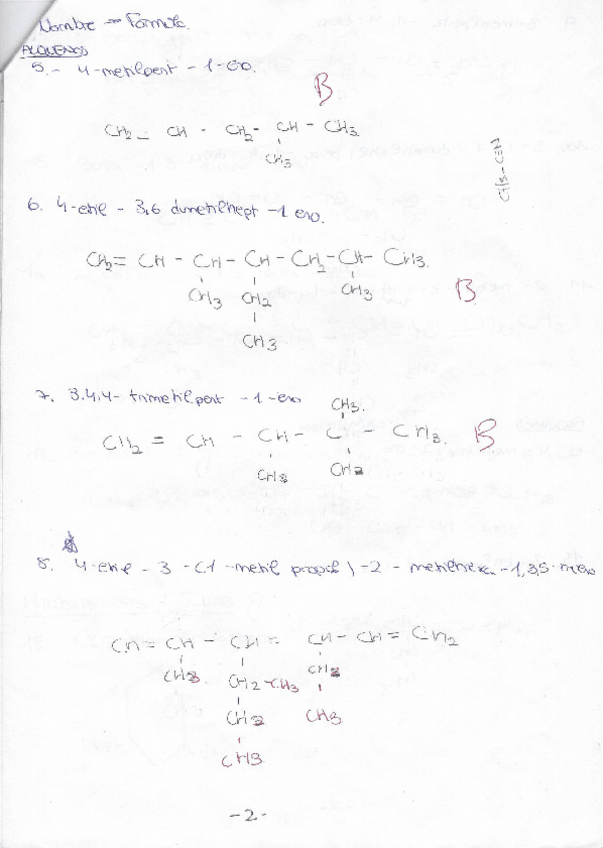 Nombre → Fórmula.
ALQUENOS
5.- 4-metilpent-1-eno.
B
CH2 = CH - CH2 - CH - CH3
CH3
CH3-C≡H
6. 4-etil - 3,6 dimetilhept -1 eno.
CH2 = CH - CH - CH - CH2 - CH - CH3.
CH3 CH2 CH3
B
CH3
7. 3.4.4- trimetilpent -1-eno
CH3.
CH2 = CH - CH - C - CH3.
B
CH3 CH3
8. 4-etil - 3 - (1-metil propil) -2 - metilhexa-1,3,5-trieno
CH = CH - CH = CH - CH = CH2
CH3. CH2-CH3 CH2
CH2 CH3
CH3
-2-